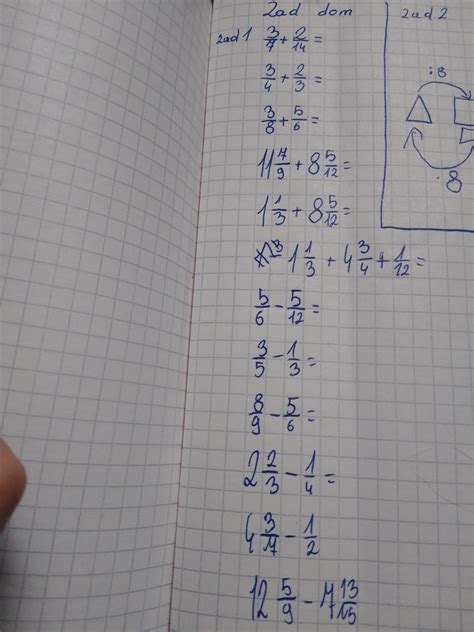 Zad dom
zad 1 3/7 + 2/14 =
3/4 + 2/3 =
3/8 + 5/6 =
11 7/9 + 8 5/12 =
1 1/3 + 8 5/12 =
1 1/3 + 4 3/4 + 1/12 =
5/6 - 5/12 =
3/5 - 1/3 =
8/9 - 5/6 =
2 2/3 - 1/4 =
4 3/7 - 1/2
12 5/9 - 7 13/15
zad 2
:8
·8